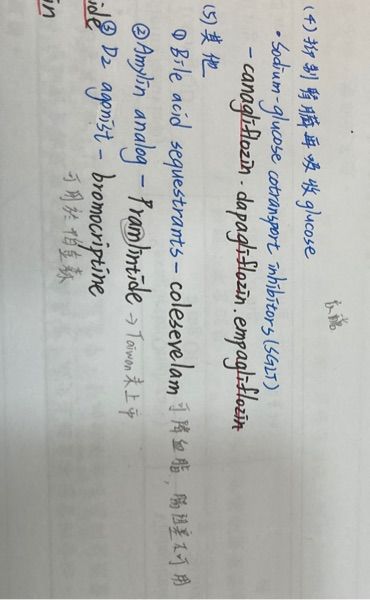 (4) 抑制腎臟再吸收glucose
• Sodium-glucose cotransport inhibitors (SGLT)
- canagliflozin · dapagliflozin · empagliflozin
(5) 其他
① Bile acid sequestrants - colesevelam 可降血脂, 腸阻塞不可用
② Amylin analog - Pramlintide → Taiwan未上市
③ D2 agonist - bromocriptine
可用於帕金森
ide
in